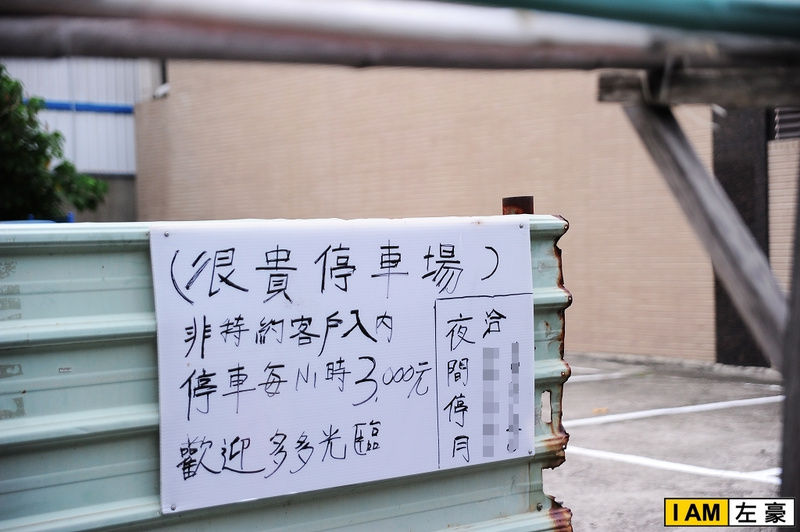 (很貴停車場)
非持約客戶入內
停車每小時3,000元
歡迎多多光臨
洽
夜間停月
I AM 左豪